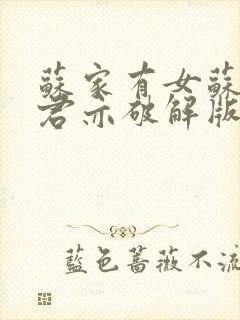 蘇家有女蘇
君亦破解版
藍色薔薇不流